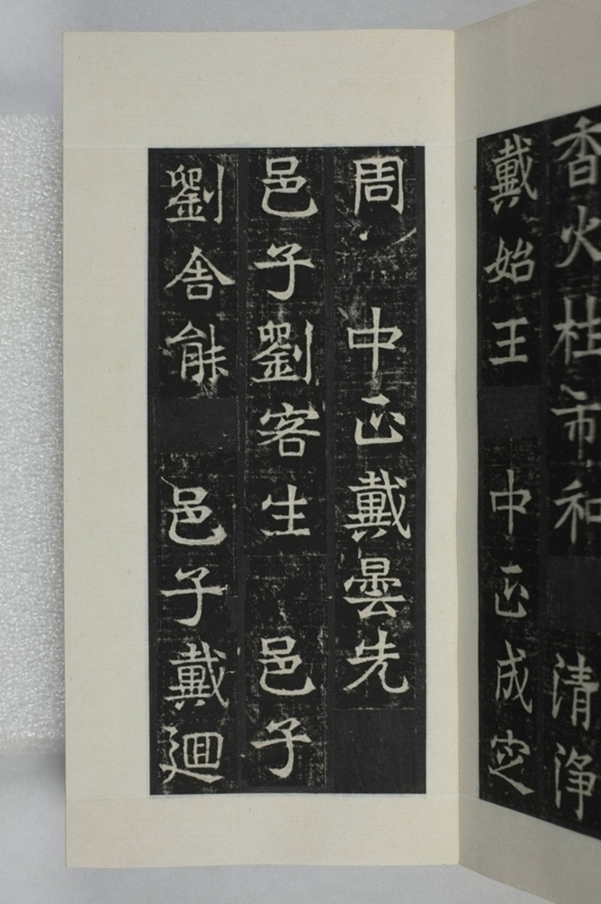 香火桂市和 清淨
戴始王 中正成定
周 中正戴曇先
邑子劉客生 邑子
劉舍能 邑子戴迴